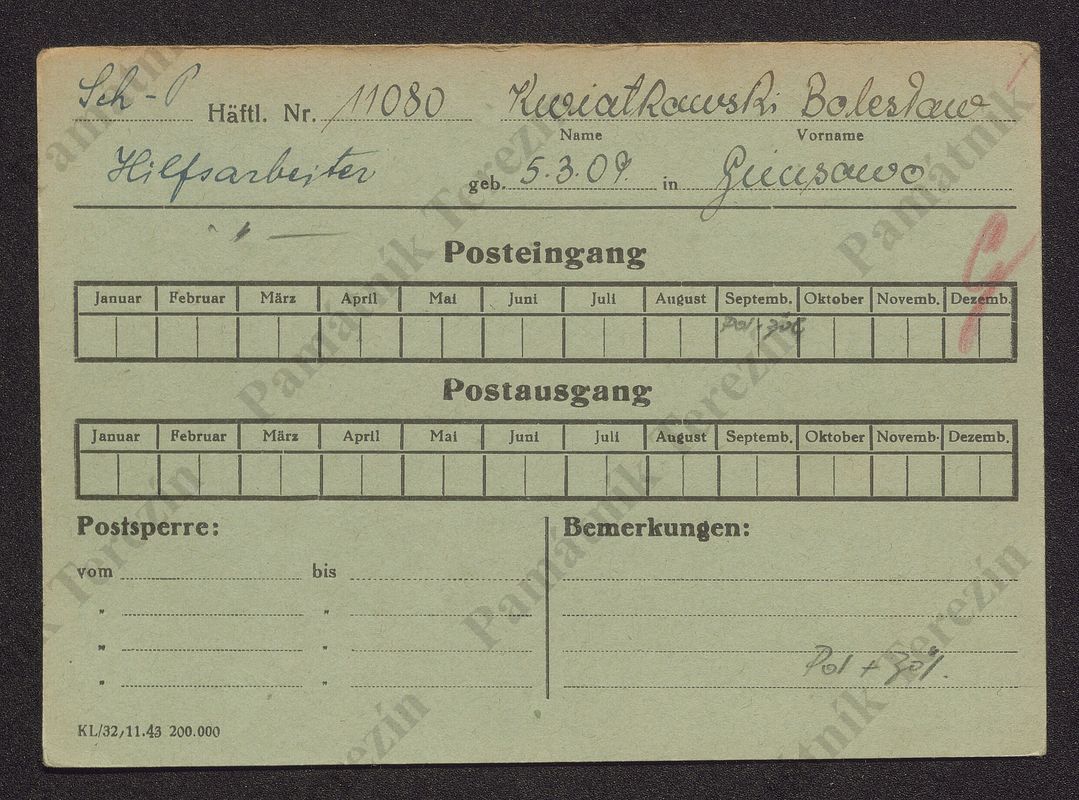 Sch - P Häftl. Nr. 11080 Kwiatkowski Bolesław
Name Vorname
Hilfsarbeiter geb. 5.3.09. in
Posteingang
Januar Februar März April Mai Juni Juli August Septemb. Oktober Novemb. Dezemb.
Postausgang
Januar Februar März April Mai Juni Juli August Septemb. Oktober Novemb. Dezemb.
Postsperre: Bemerkungen:
vom bis
" "
" "
Pol +
" "
KL/32,11.43 200.000
Památník Terezín